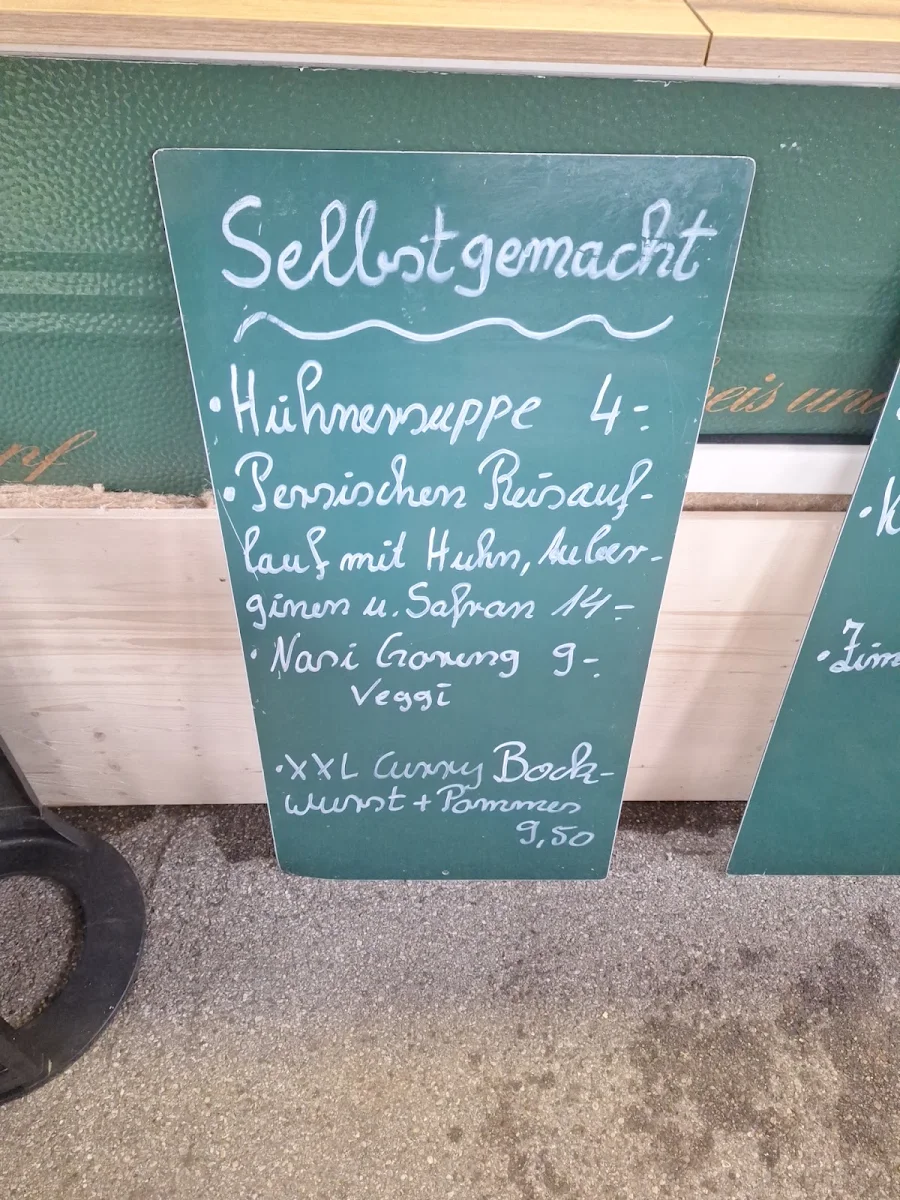 Selbstgemacht
• Hühnersuppe 4-
• Persischen Reisauf-
lauf mit Huhn, Auber-
ginen u. Safran 14-
• Nasi Goreng 9-
Veggi
• XXL Curry Bock-
wurst + Pommes
9,50
eis und